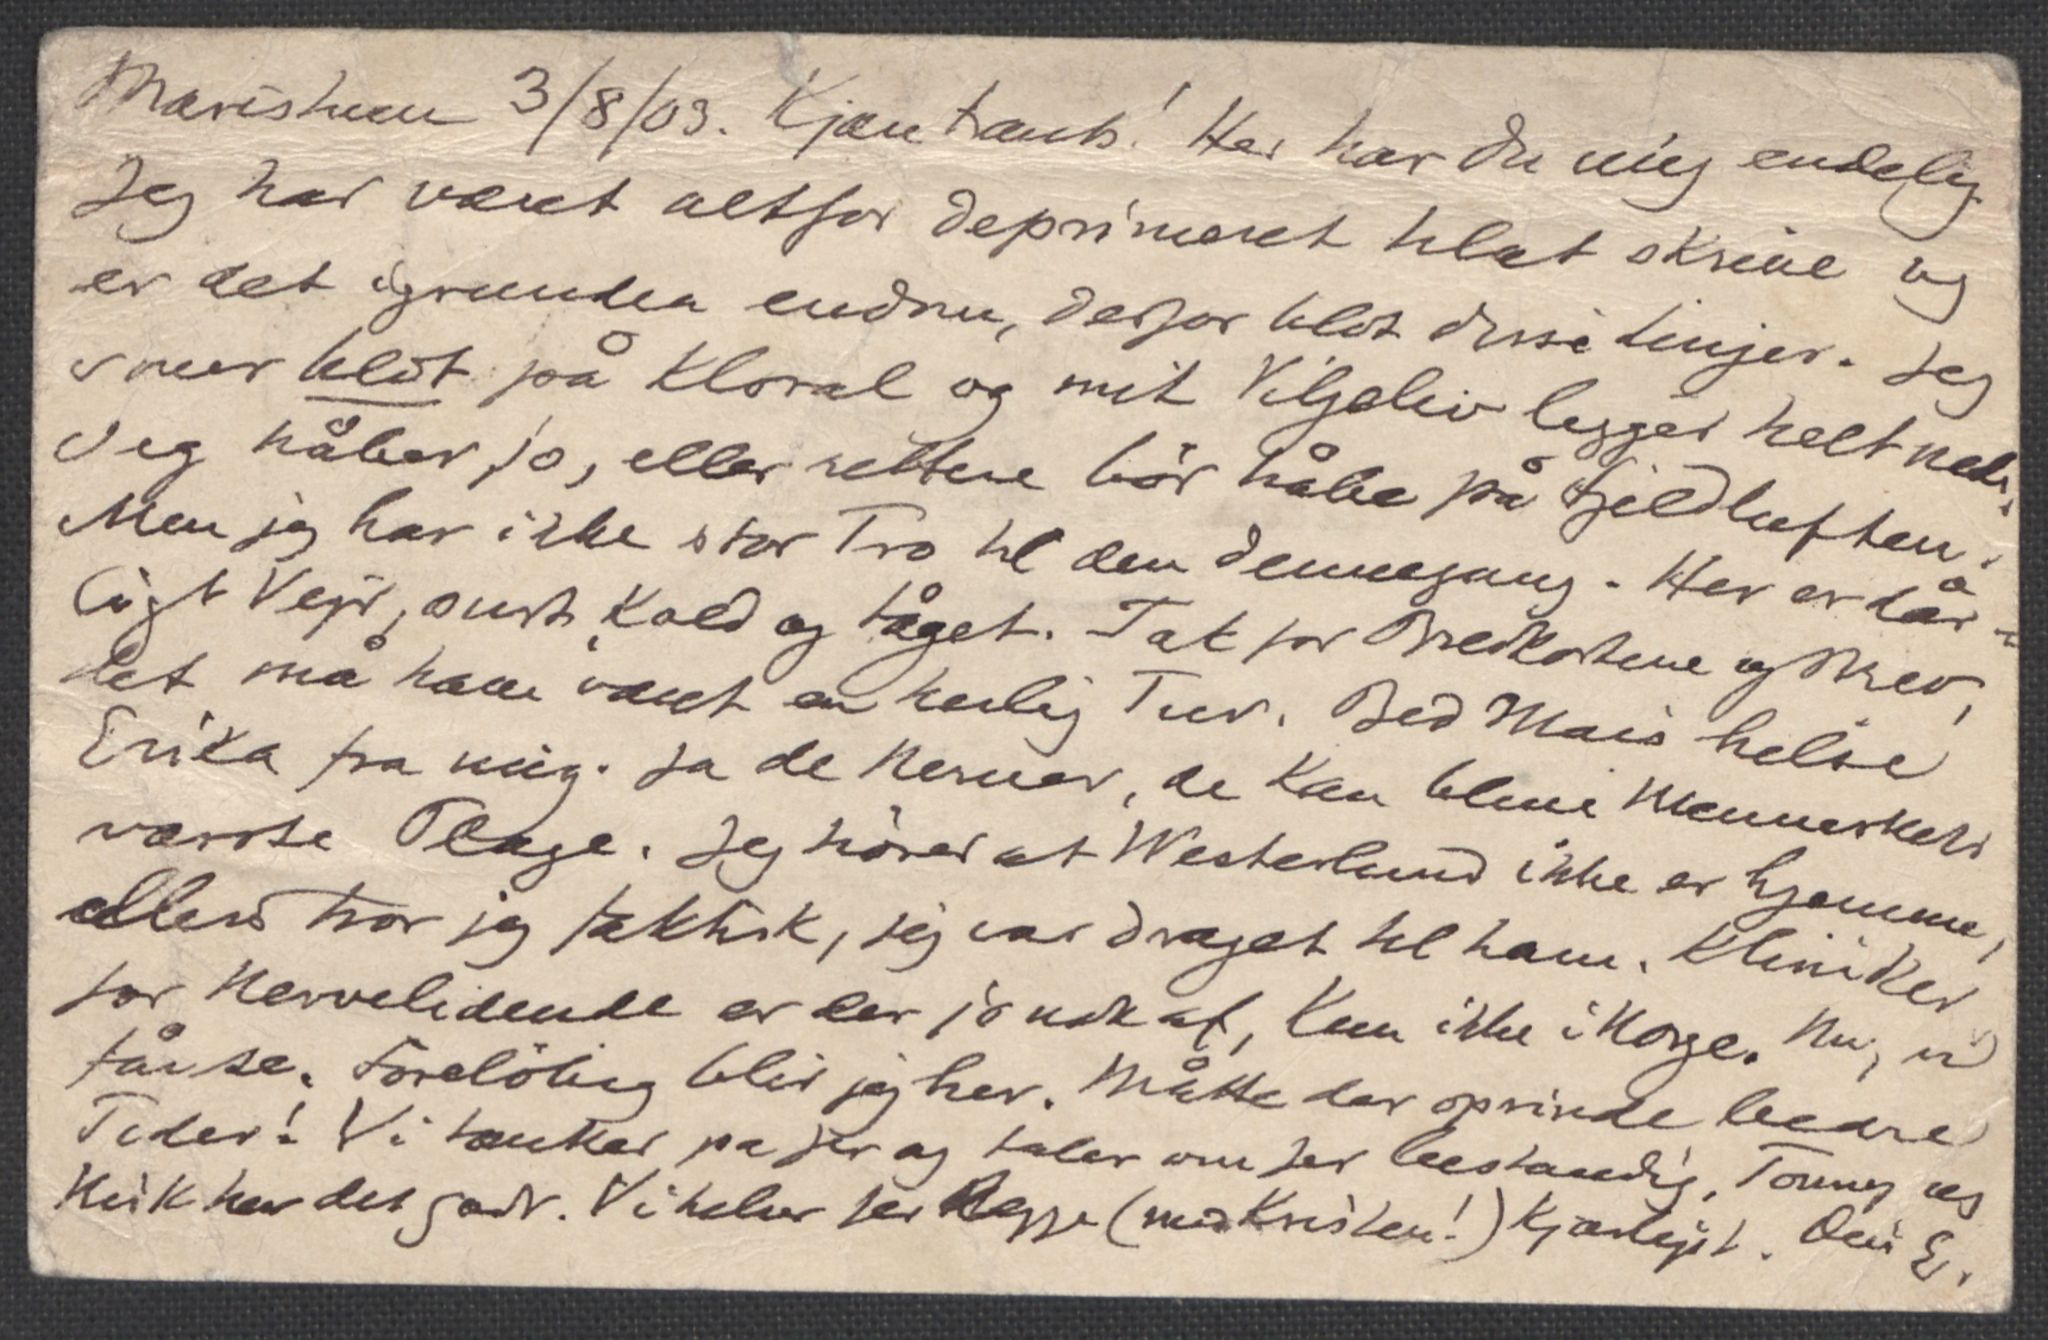 Maristuen 3/8/03. Kjære Frants! Her har Du mig endelig.
Jeg har været altfor deprimeret til at skrive og
er det igrunden endnu, derfor blot disse Linjer. Jeg
sover blot på Kloral og mit Viljeliv ligger helt nede.
Jeg håber jo, eller rettere bör håbe på Fjeldluften.
Men jeg har ikke stor Tro til den dennegang. Her er dår-
ligt Vejr, surt, kold og tåget. Tak for Brevkortene og Brev,
det må have været en herlig Tur. Bed Mais hilse
Erika fra mig. Ja de Nerver, de kan blive Menneskets
værste Plage. Jeg hörer at Westerlund ikke er hjemme,
ellers tror jeg faktisk, jeg var draget til ham. Kliniker
for Nervelidende er der jo nok af, kun ikke i Norge. Nu, vi
får se. Forelöbig blir jeg her. Måtte der oprinde bedre
Tider! Vi tænker på Jer og taler om Jer bestandig. Tonny og
Nisk har det godt. Vi hilser Jer Begge (med Kristen!) kjærligst. Din E.